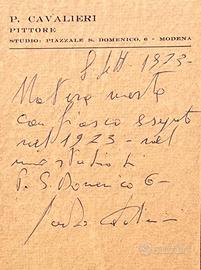 P. CAVALIERI
PITTORE
STUDIO: PIAZZALE S. DOMENICO, 6 - MODENA
8 1973 -
Natura morta
con fiasco eseguita
nel 1973 - nel
mio studio di
P. S. Domenico 6 -